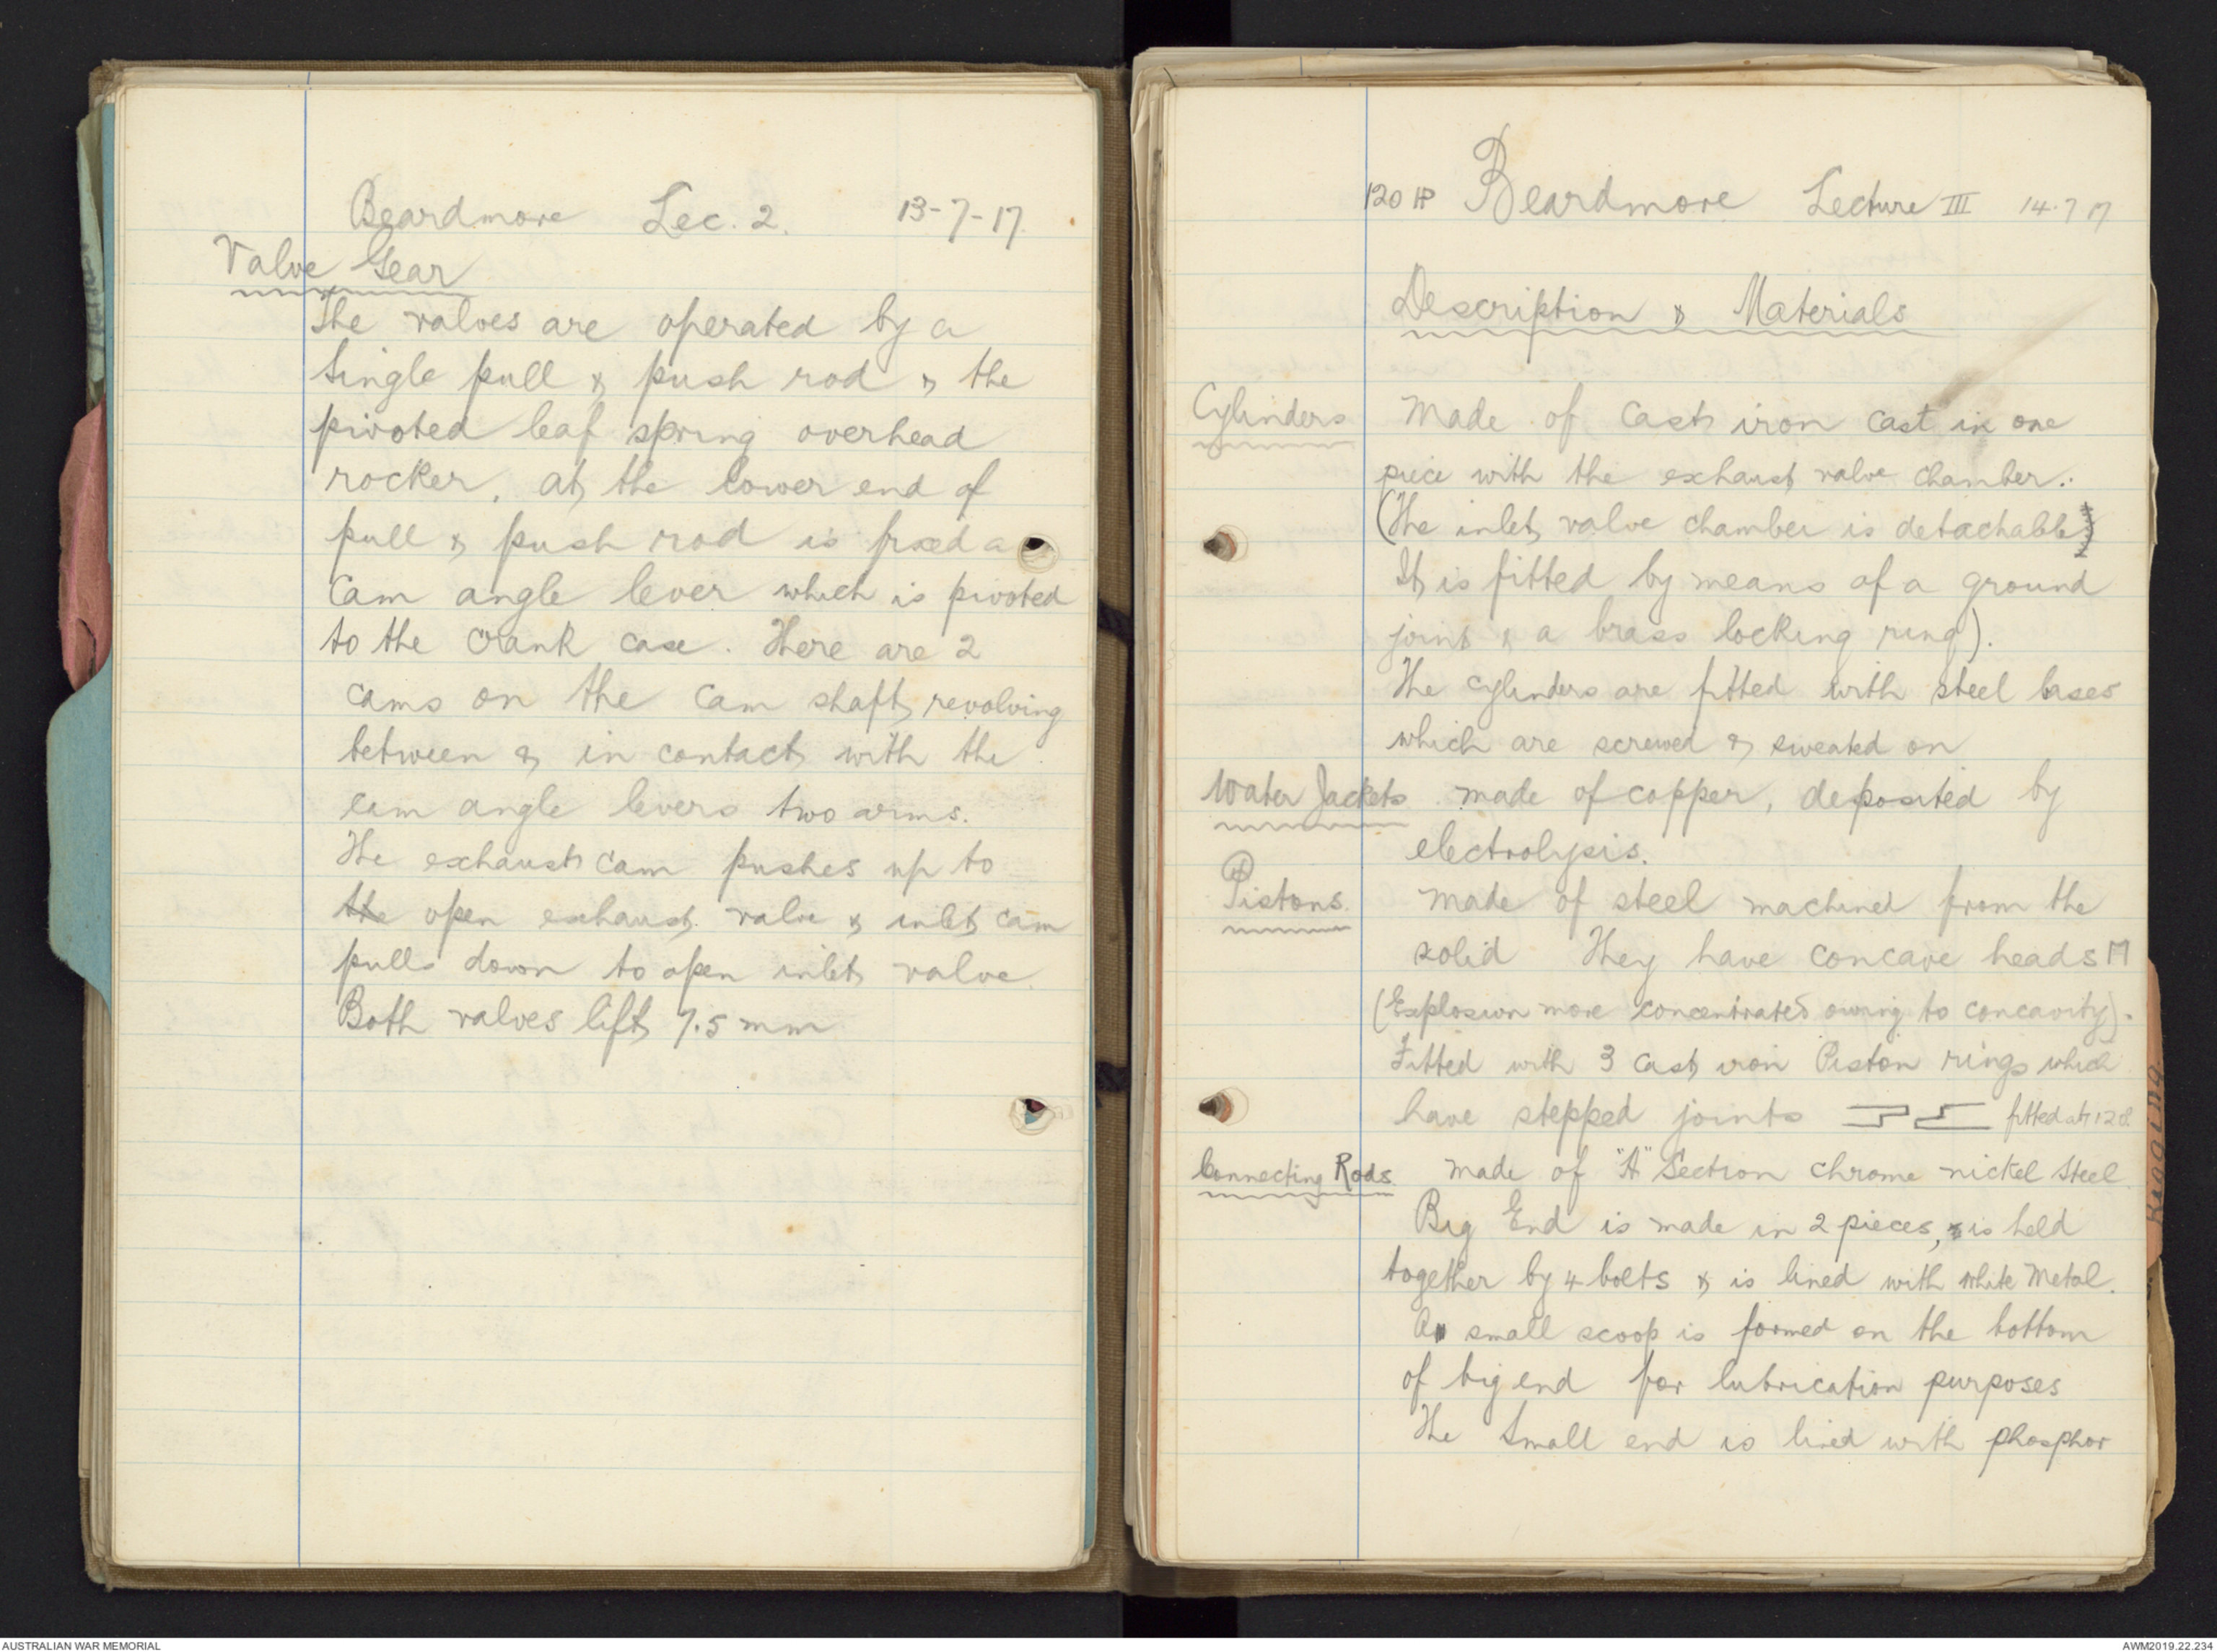 Beardmore Lec. 2. 13-7-17
Valve Gear
The valves are operated by a
single pull & push rod & the
pivoted leaf spring overhead
rocker, at the lower end of
pull & push rod is fixed a
Cam angle lever which is pivoted
to the crank case. There are 2
cams on the cam shaft, revolving
between & in contact with the
cam angle levers two arms.
The exhaust cam pushes up to
the open exhaust valve & inlet cam
pulls down to open inlet valve.
Both valves lift 7.5 mm
120 HP Beardmore Lecture III 14.7.17
Description & Materials
Cylinders Made of Cast iron cast in one
piece with the exhaust valve chamber.
(The inlet valve chamber is detachable
It is fitted by means of a ground
joint & a brass locking ring).
The cylinders are fitted with steel bases
which are screwed & sweated on
Water Jackets made of copper, deposited by
electrolysis.
Pistons. Made of steel machined from the
solid They have concave heads
(Explosion more concentrated owing to concavity).
Fitted with 3 cast iron Piston rings which
have stepped joints fitted at 120.
Connecting Rods. Made of "H" Section chrome nickel steel.
Big End is made in 2 pieces, & is held
together by 4 bolts & is lined with white Metal.
A small scoop is formed on the bottom
of big end for lubrication purposes
The small end is lined with phosphor
AUSTRALIAN WAR MEMORIAL
AWM2019.22.234